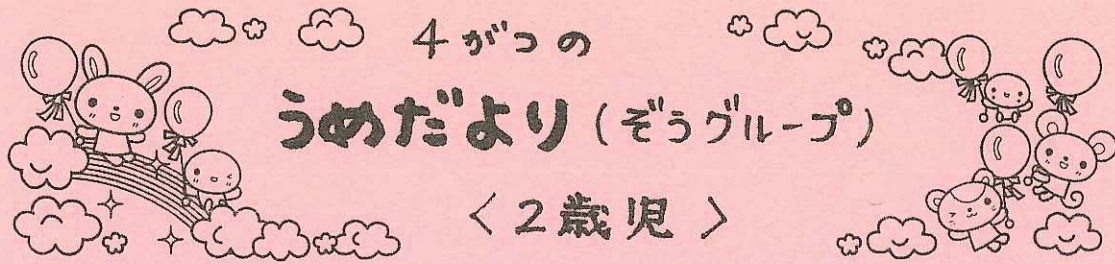 4がつの
うめだより(ぞうグループ)
〈2歳児〉